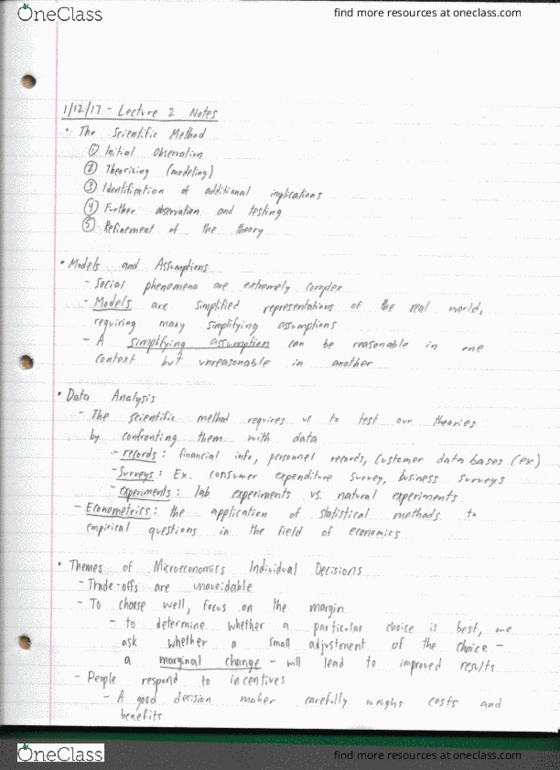 OneClass
find more resources at oneclass.com
1/12/17 - Lecture 2 Notes
• The Scientific Method
① Initial Observation
② Theorizing (modeling)
③ Identification of additional implications
④ Further observation and testing
⑤ Refinement of the theory
• Models and Assumptions
- Social phenomena are extremely complex
- Models are simplified representations of the real world,
requiring many simplifying assumptions
- A simplifying assumption can be reasonable in one
context but unreasonable in another
• Data Analysis
- The scientific method requires us to test our theories
by confronting them with data
- records: financial info, personnel records, customer data bases (ex)
- Surveys: Ex. consumer expenditure survey, business surveys
- experiments: lab experiments vs. natural experiments
- Econometrics: the application of statistical methods to
empirical questions in the field of economics
• Themes of Microeconomics Individual Decisions
- Trade-offs are unavoidable
- To choose well, focus on the margin
- to determine whether a particular choice is best, we
ask whether a small adjustment of the choice -
a marginal change - will lead to improved results
- People respond to incentives
- A good decision maker carefully weighs costs and
benefits
OneClass
find more resources at oneclass.com